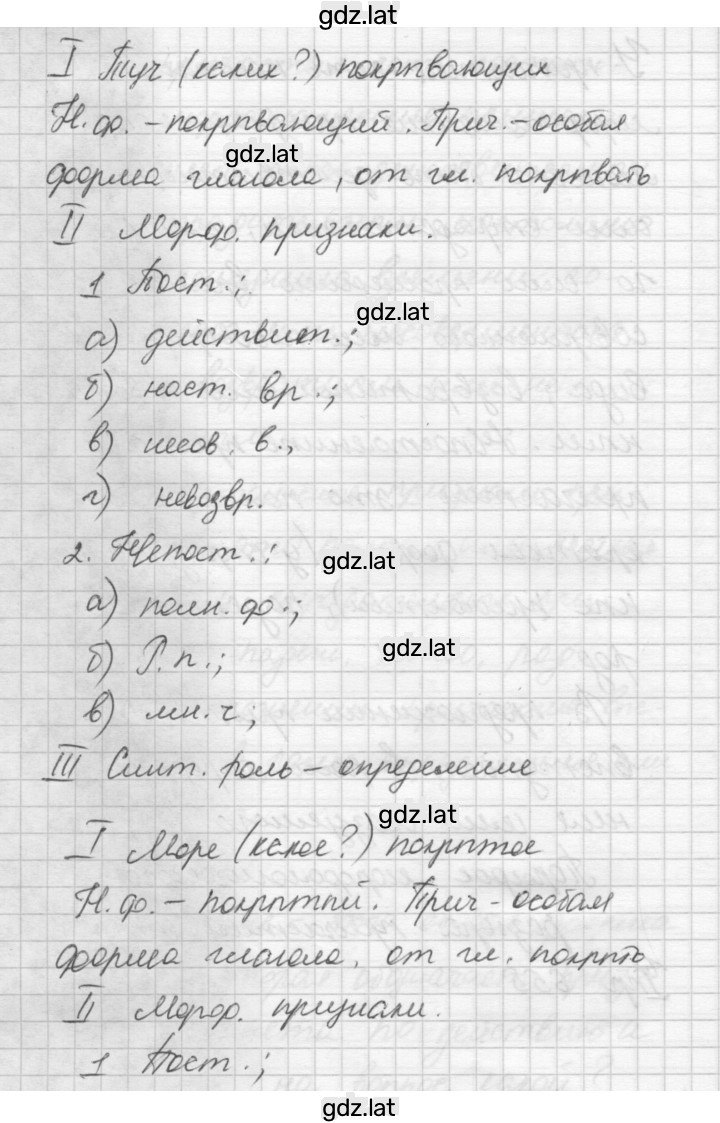 gdz.lat
I Туч (каких?) покрывающих
Н. ф. – покрывающий. Прич. – особая
gdz.lat
форма глагола, от гл. покрывать
II Морф. признаки.
1 Пост.;
gdz.lat
а) действит.;
б) наст. вр.;
в) несов. в.,
г) невозвр.
2. Непост.:
gdz.lat
а) полн. ф.;
gdz.lat
б) Р. п.;
в) мн. ч;
III Синт. роль – определение
gdz.lat
I Море (какое?) покрытое
Н. ф. – покрытый. Прич – особая
форма глагола, от гл. покрыть
II Морф. признаки.
1 Пост.;
gdz.lat